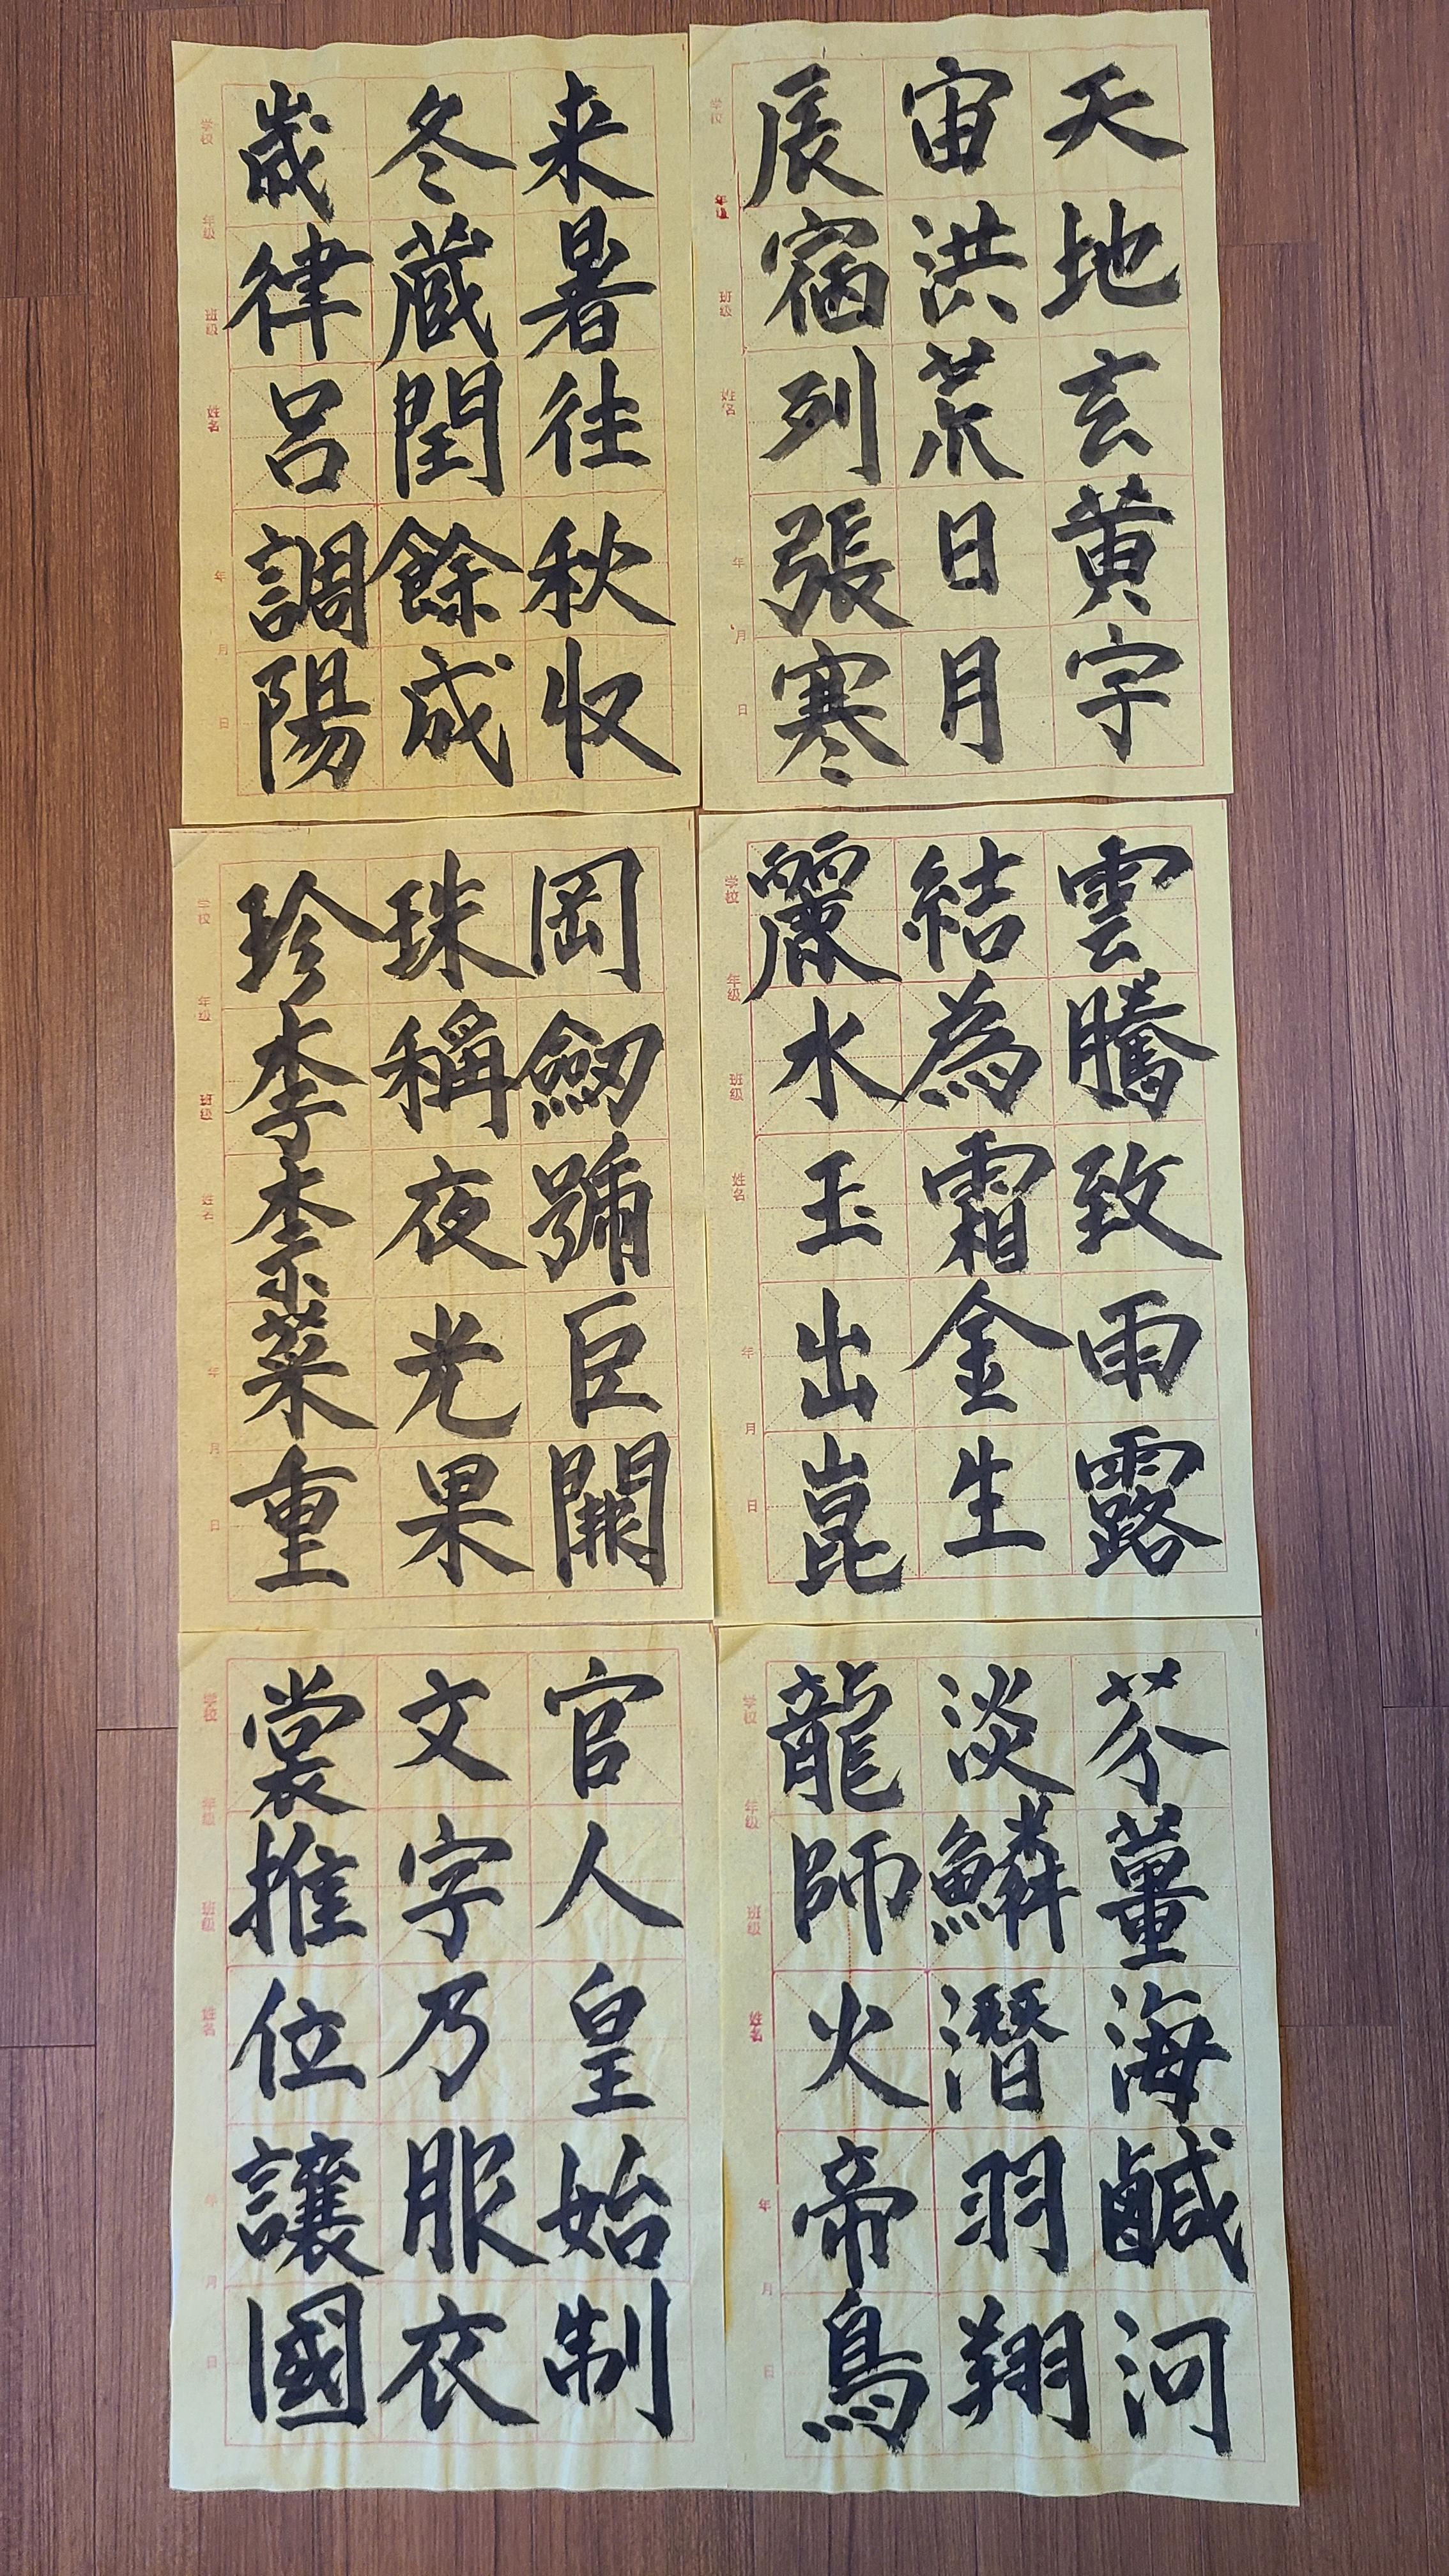 天地玄黄宇
宙洪荒日月
辰宿列張寒
学校 年级 班级 姓名 年 月 日
来暑往秋収
冬蔵閏餘成
歳律呂調陽
学校 年级 班级 姓名 年 月 日
雲騰致雨露
結為霜金生
麗水玉出崑
学校 年级 班级 姓名 年 月 日
岡劒號巨闕
珠稱夜光果
珍李柰菜重
学校 年级 班级 姓名 年 月 日
芥薑海鹹河
淡鱗潛羽翔
龍師火帝鳥
学校 年级 班级 姓名 年 月 日
官人皇始制
文字乃服衣
裳推位讓國
学校 年级 班级 姓名 年 月 日